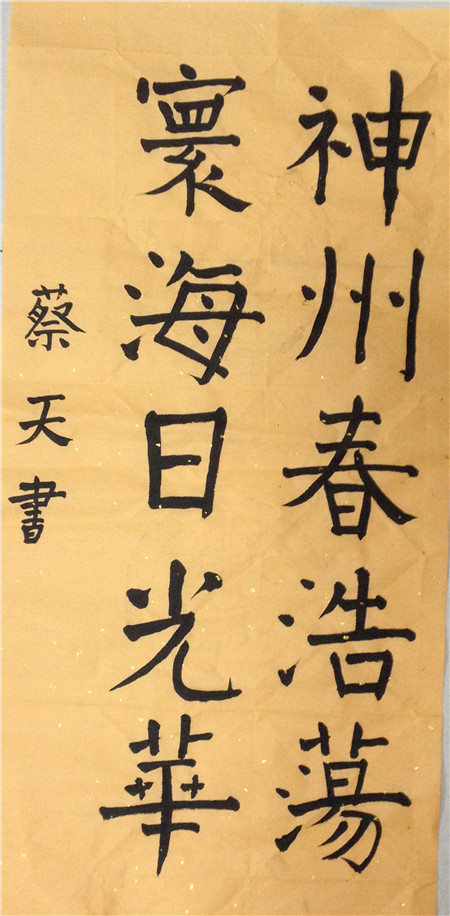 神州春浩蕩
寰海日光華
蔡天書